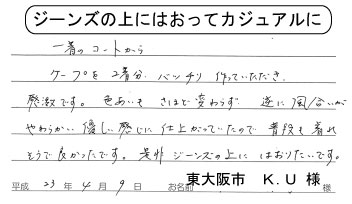 ジーンズの上にはおってカジュアルに
一着のコートから
ケープを2着分 バッチリ 作っていただき、
感激です。色あいも さほど変わらず 逆に風合いが
やわらかい 優しい感じに仕上がっていたので 普段も着れ
そうで良かったです。是非 ジーンズの上に はおりたいです。
平成 23年 4月 9日 お名前 東大阪市 K.U 様 様